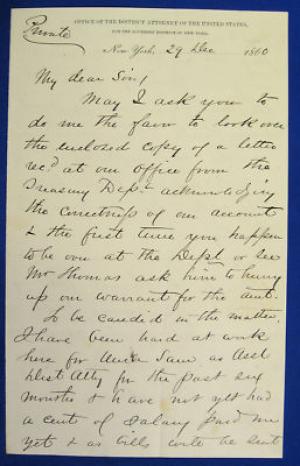 Private
OFFICE OF THE DISTRICT ATTORNEY OF THE UNITED STATES,
FOR THE SOUTHERN DISTRICT OF NEW YORK.
New York. 29 Dec 1860
My dear Sir,
May I ask you to
do me the favor to look over
the enclosed copy of a letter
recd at our office from the
Treasury Dept acknowledging
the correctness of our account
& the first time you happen
to be over at the Dept or see
Mr Thomas ask him to hurry
up our warrant for the amt.
To be candid in the matter
I have been hard at work
here for Uncle Sam as Asst
Dist Atty for the past six
months & have not yet had
a cent of salary paid me
yet & as bills will be sent